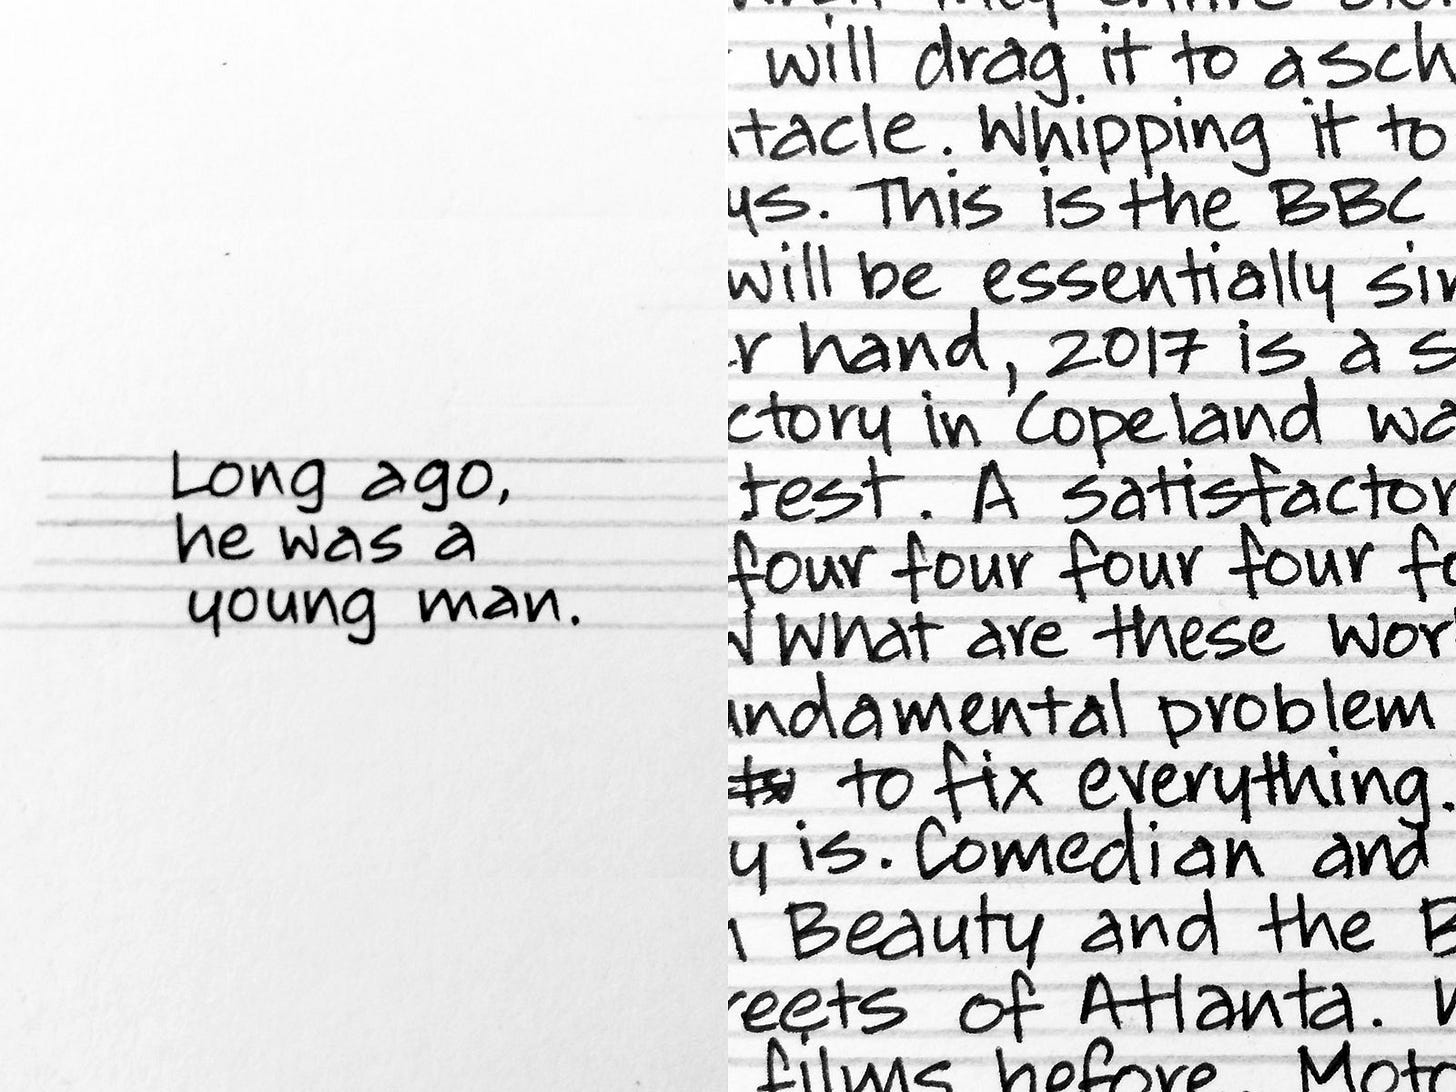 Long ago,
he was a
young man.
will drag it to a sch
tacle. Whipping it to
ys. This is the BBC
will be essentially sim
r hand, 2017 is a s
ctory in Copeland wa
test. A satisfactor
four four four four fo
What are these wor
undamental problem
to fix everything.
y is. Comedian and
Beauty and the B
reets of Atlanta.
films before. Moto